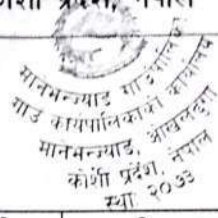 कोशी प्रदेश, नेपाल
मानेभन्ज्याङ गाउँपालिका
गाउँ कार्यपालिकाको कार्यालय
मानेभन्ज्याङ, ओखलढुंगा
कोशी प्रदेश, नेपाल
स्था: २०७३